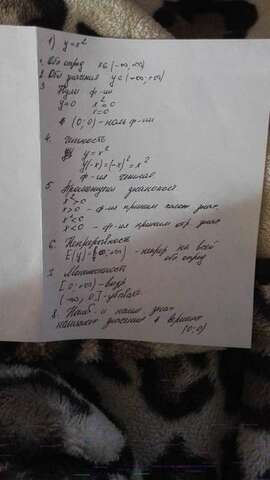 1) y=x²
1. Обл опред x∈(-∞;+∞)
2. Обл значения y∈(-∞;+∞)
3 Нули ф-ии
y=0 x²=0
x=0
(0;0) - ноль ф-ии
4. Чётность
y=x²
y(-x)=(-x)²=x²
ф-ия четная
5. Промежутки
x²>0
x>0 - ф-ия приним знач
x²<0
x<0 - ф-ия приним отр знач
6. Непрерывность
E(y) ∞;+∞) - непрер на всей
обл опред
7. Монотонность
[0;+∞) - возр
(-∞;0] - убывает
8. Наиб и наим знач
значение в вершине
(0;0)